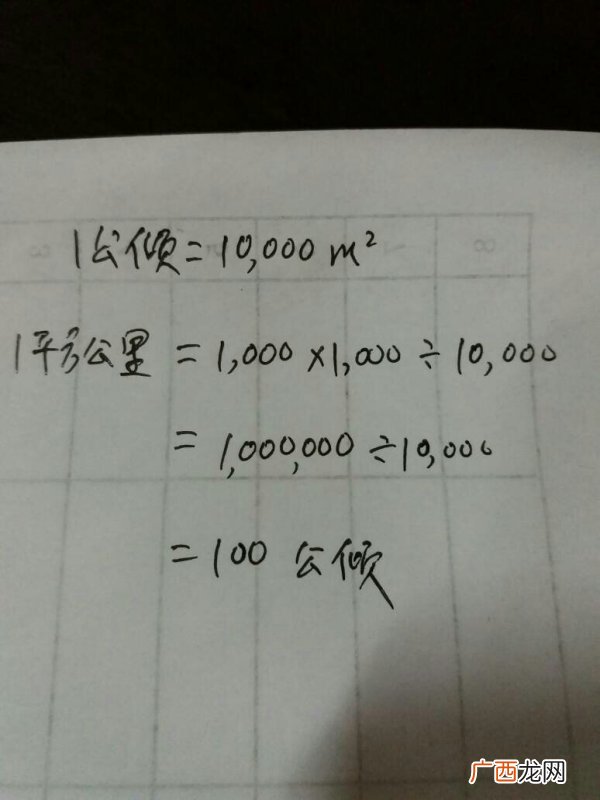 1公倾=10,000 m²
1平方公里 = 1,000×1,000÷10,000
= 1,000,000÷10,000
=100 公倾
广西龙网